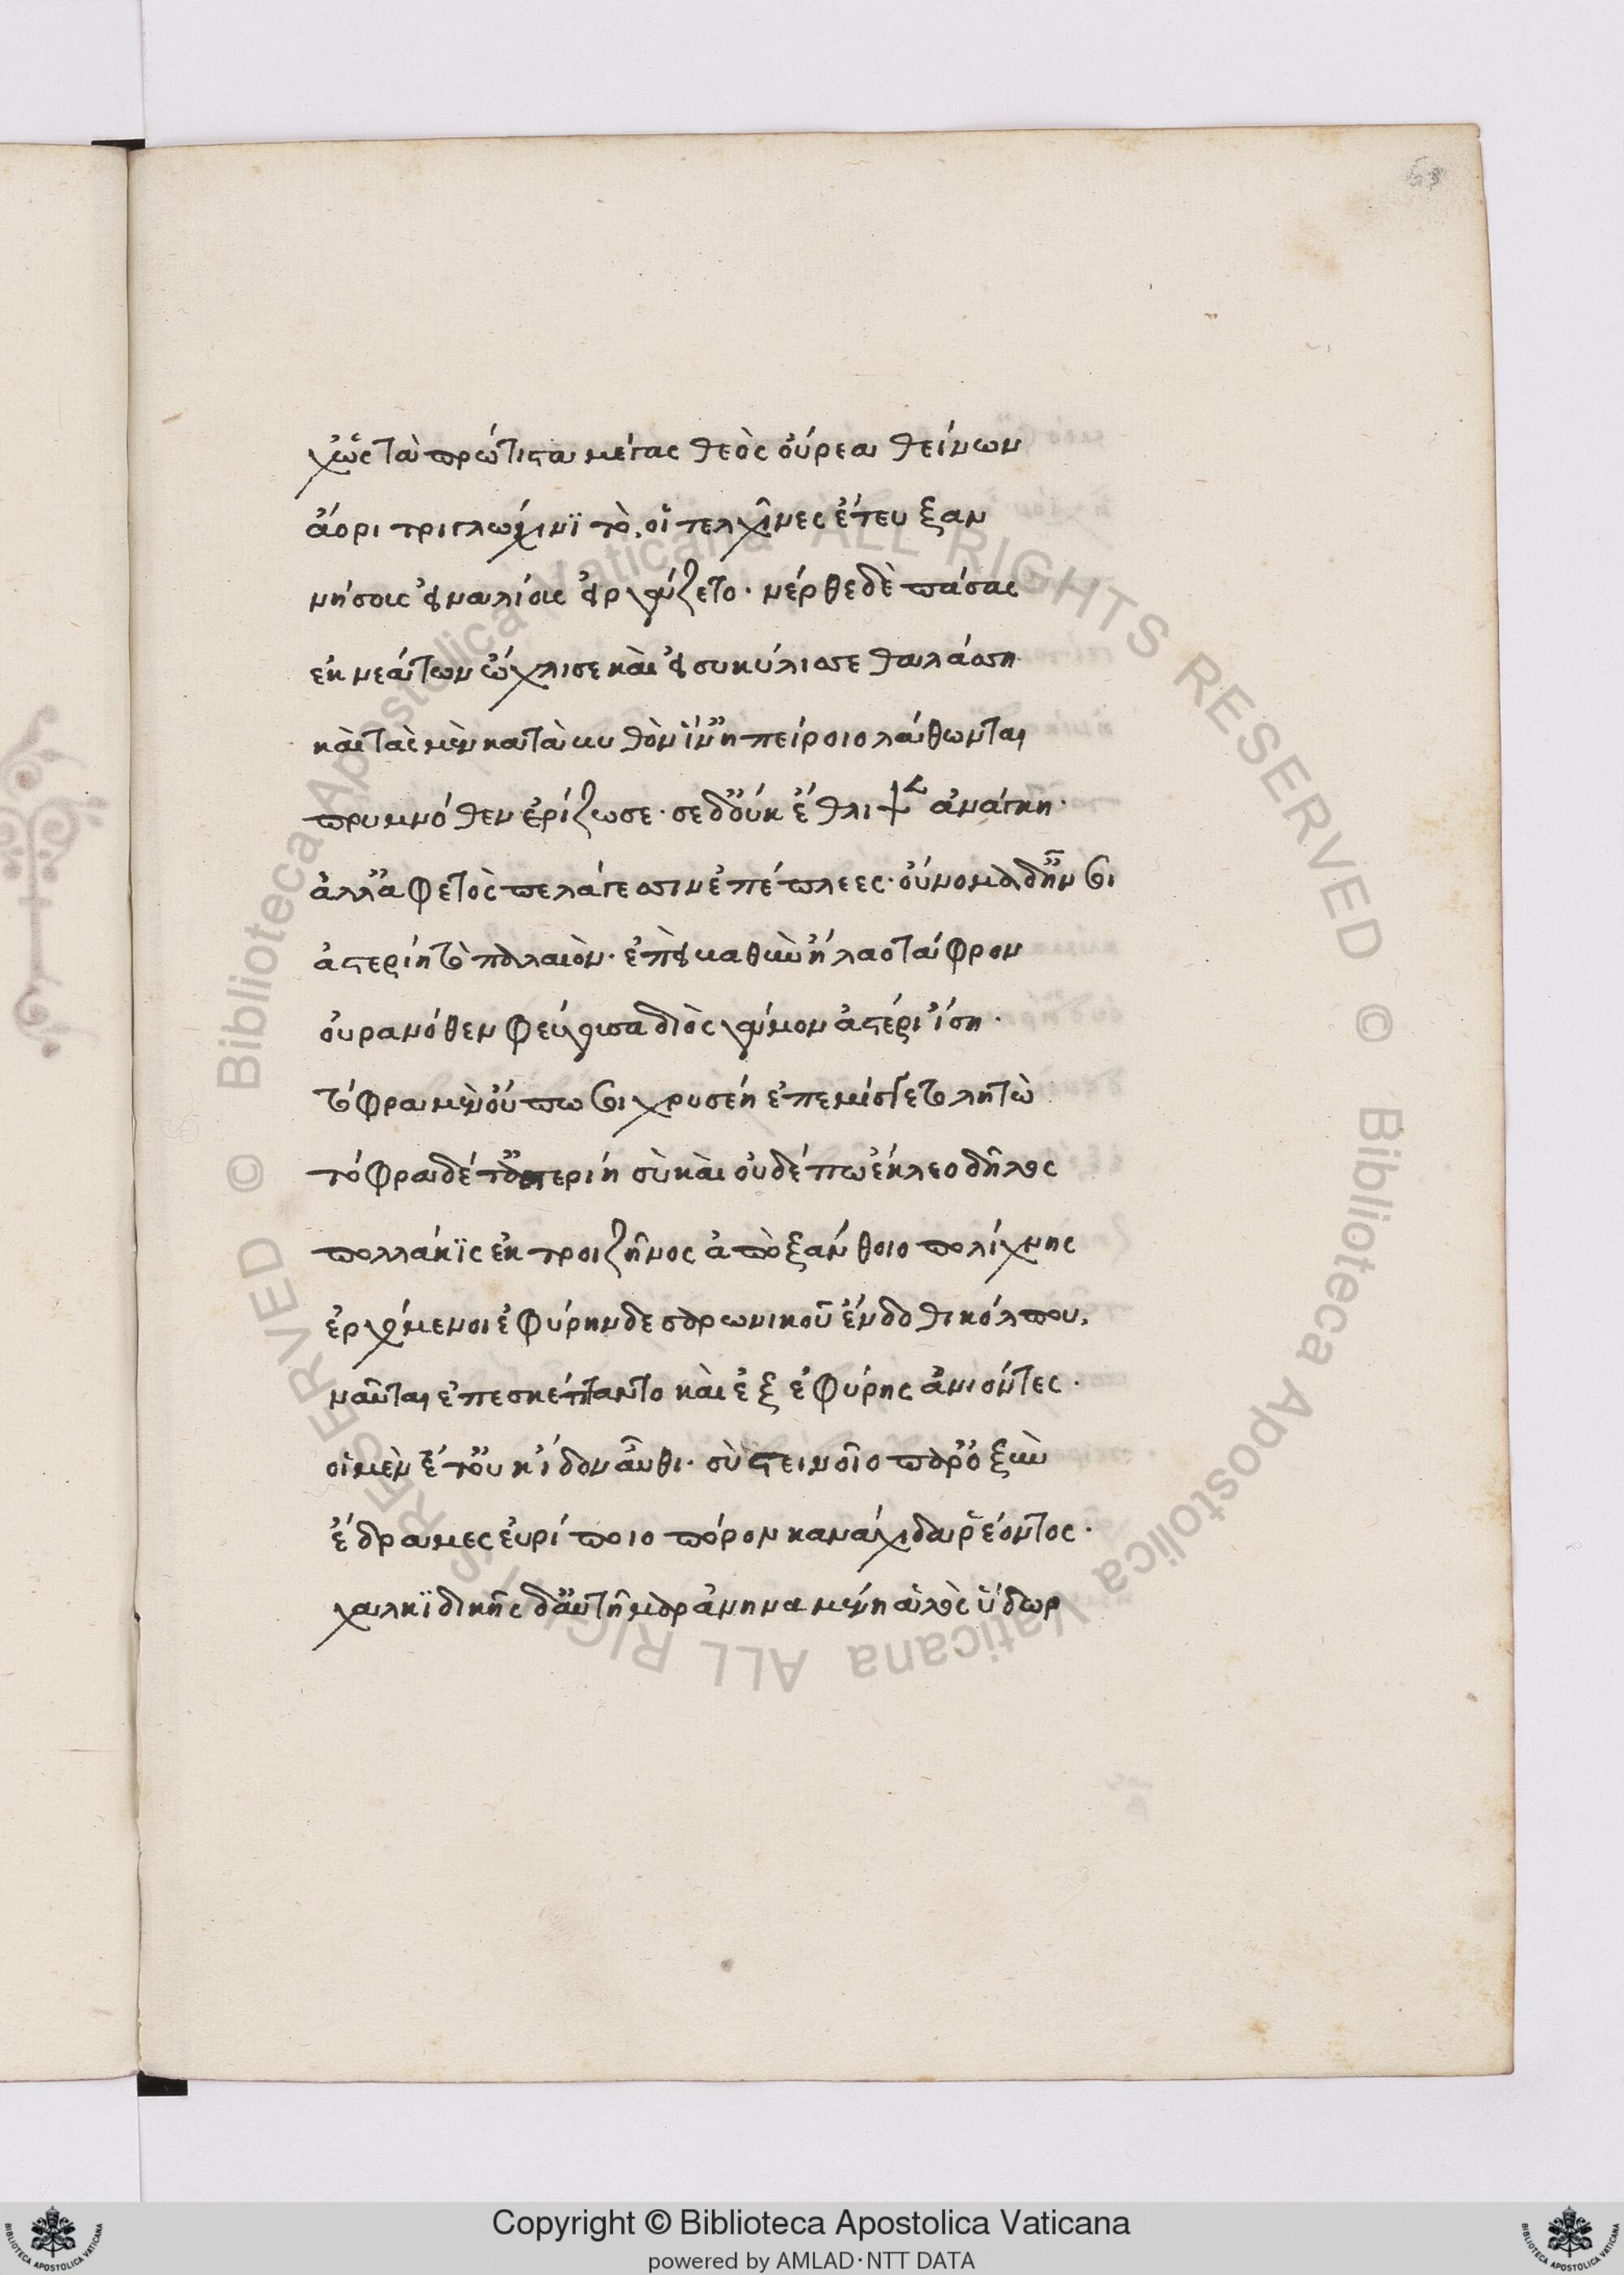 63
χὡς τὰ πρώτιστα μέγας θεὸς οὔρεα θείνων
ἄορι τριγλώχινϊ τὸ, οἱ τελχῖνες ἔτευξαν
νήσοις εἰναλίαις εἰργάζετο· νέρθε δὲ πάσας
ἐκ νεάτων ὤχλισε καὶ εἰσυκύλισσε θαλάσση
καὶ τὰς μὲν κατὰ κυθὸν ἵν ἠπείροιο λάθωνται
πρυμνόθεν ἐρίζωσε· σε δ' οὐκ ἔθλιψεν ἀνάγκη·
ἀλλ' ἄφετος πελάγεσσιν ἐπέπλεες· οὔνομα δ' ἦν τοι
ἀστερίη τὸ παλαιὸν· ἐπεὶ βαθὺν ἥλαο τάφρον
οὐρανόθεν φεύγουσα διὸς γάμον ἀστέρι ἴση·
τόφρα μὲν οὔπω τοι χρυσέη ἐπεμίσγετο λητὼ
τόφρα δέ τ' ἀστερίη σὺ καὶ οὐδέπω ἔκλεο δῆλος
πολλάκϊς ἐκ τροιζῆνος ἀπὸ ξάνθοιο πολίχνης
ἐρχόμενοι ἐφύρηνδε σαρωνικοῦ ἔνδοθι κόλπου,
ναῦται ἐπεσκέψαντο καὶ ἐξ ἐφύρης ἀνιόντες·
οἱ μὲν ἔτ' οὐκ ἴδον αὖθι· σὺ στεινοῖο παρ' ὀξὺν
ἔδραμες εὐρίποιο πόρον καναχιδὰ ῥέοντος·
χαλκϊδικῆς δ' αὐτῆμαρ ἀνηναμένη ἁλὸς ὕδωρ
Copyright © Biblioteca Apostolica Vaticana
powered by AMLAD·NTT DATA